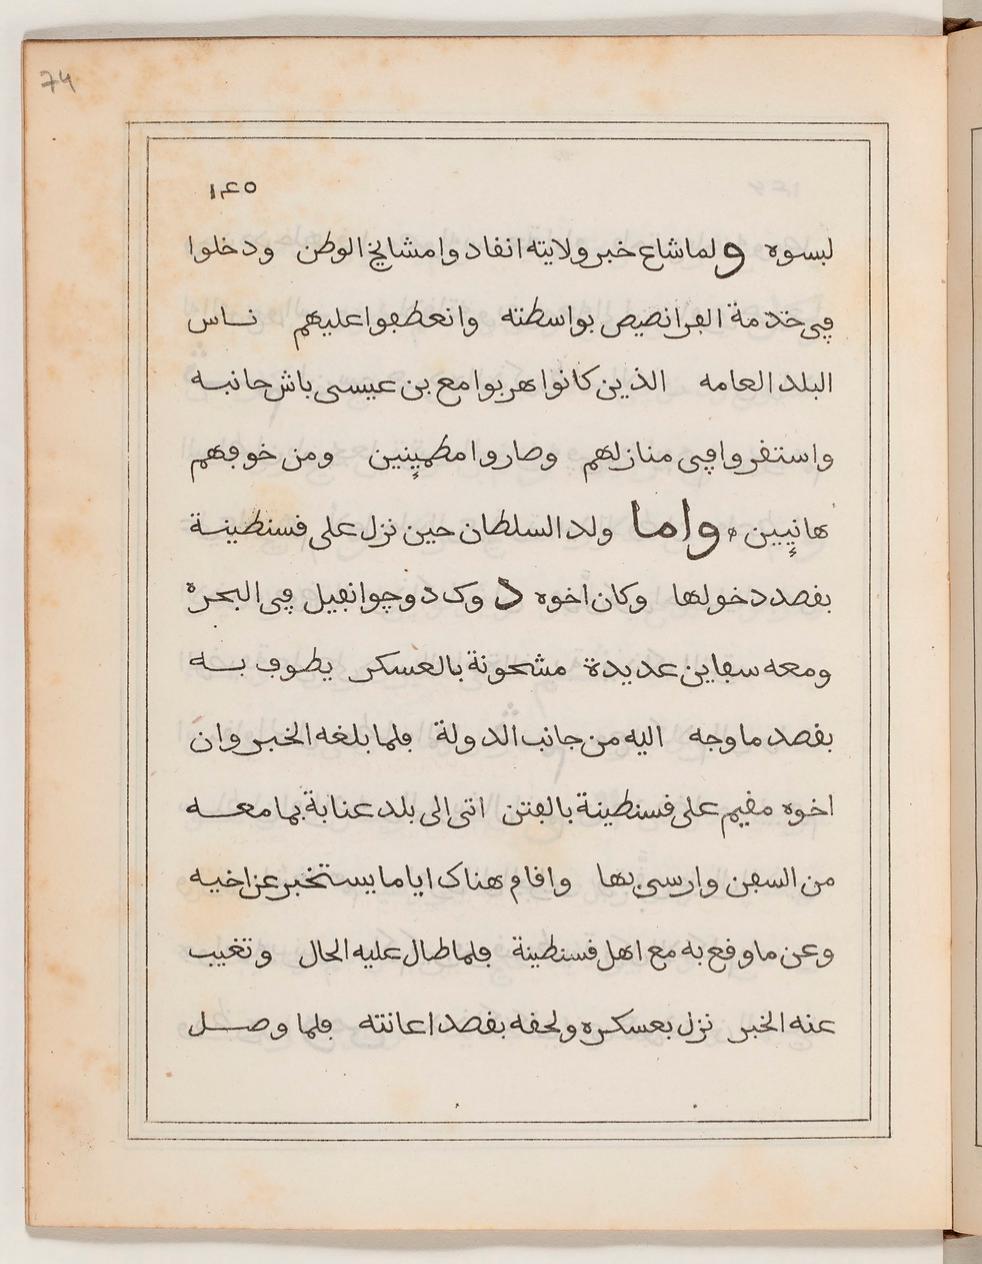 74
١٤٥
لبسوه ولما شاع خبر ولايته انفادوا مشايخ الوطن ودخلوا
ڢي خدمة الڢرانصيص بواسطته وانعطڢوا عليهم نـاس
البلد العامه الذين كانوا هربوا مع بن عيسى باش حانبـه
واستڧروا ڢي منازلهم وصاروا مطمينين ومن خوڢهم
هانيين ه واما ولد السلطان حين نزل على ڧسنطينـة
بڧصد دخولها وكان اخوه دوك دوجوانڢيل ڢي البحره
ومعه سڢاين عديدة مشحونة بالعسكر يطوڢ بـه
بڧصد ما وجه اليه من جانب الدولة ڢلما بلغه الخبر وان
اخوه مڧيم على ڧسنطينة بالڢتن اتى الى بلد عنابة بما معـه
من السڢن وارسى بها واڧام هناك اياما يستخبر عن اخيه
وعن ما وڧع به مع اهل ڧسنطينة ڢلما طال عليه الحال وتغيب
عنه الخبر نزل بعسكره ولحڧه بڧصد اعانته ڢلما وصـل